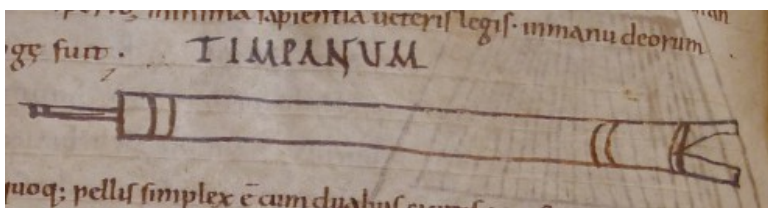 minima sapientia ueteris legis. inmanu deorum
gę fuit. TIMPANUM
quoq; pellis simplex ē cum duabus